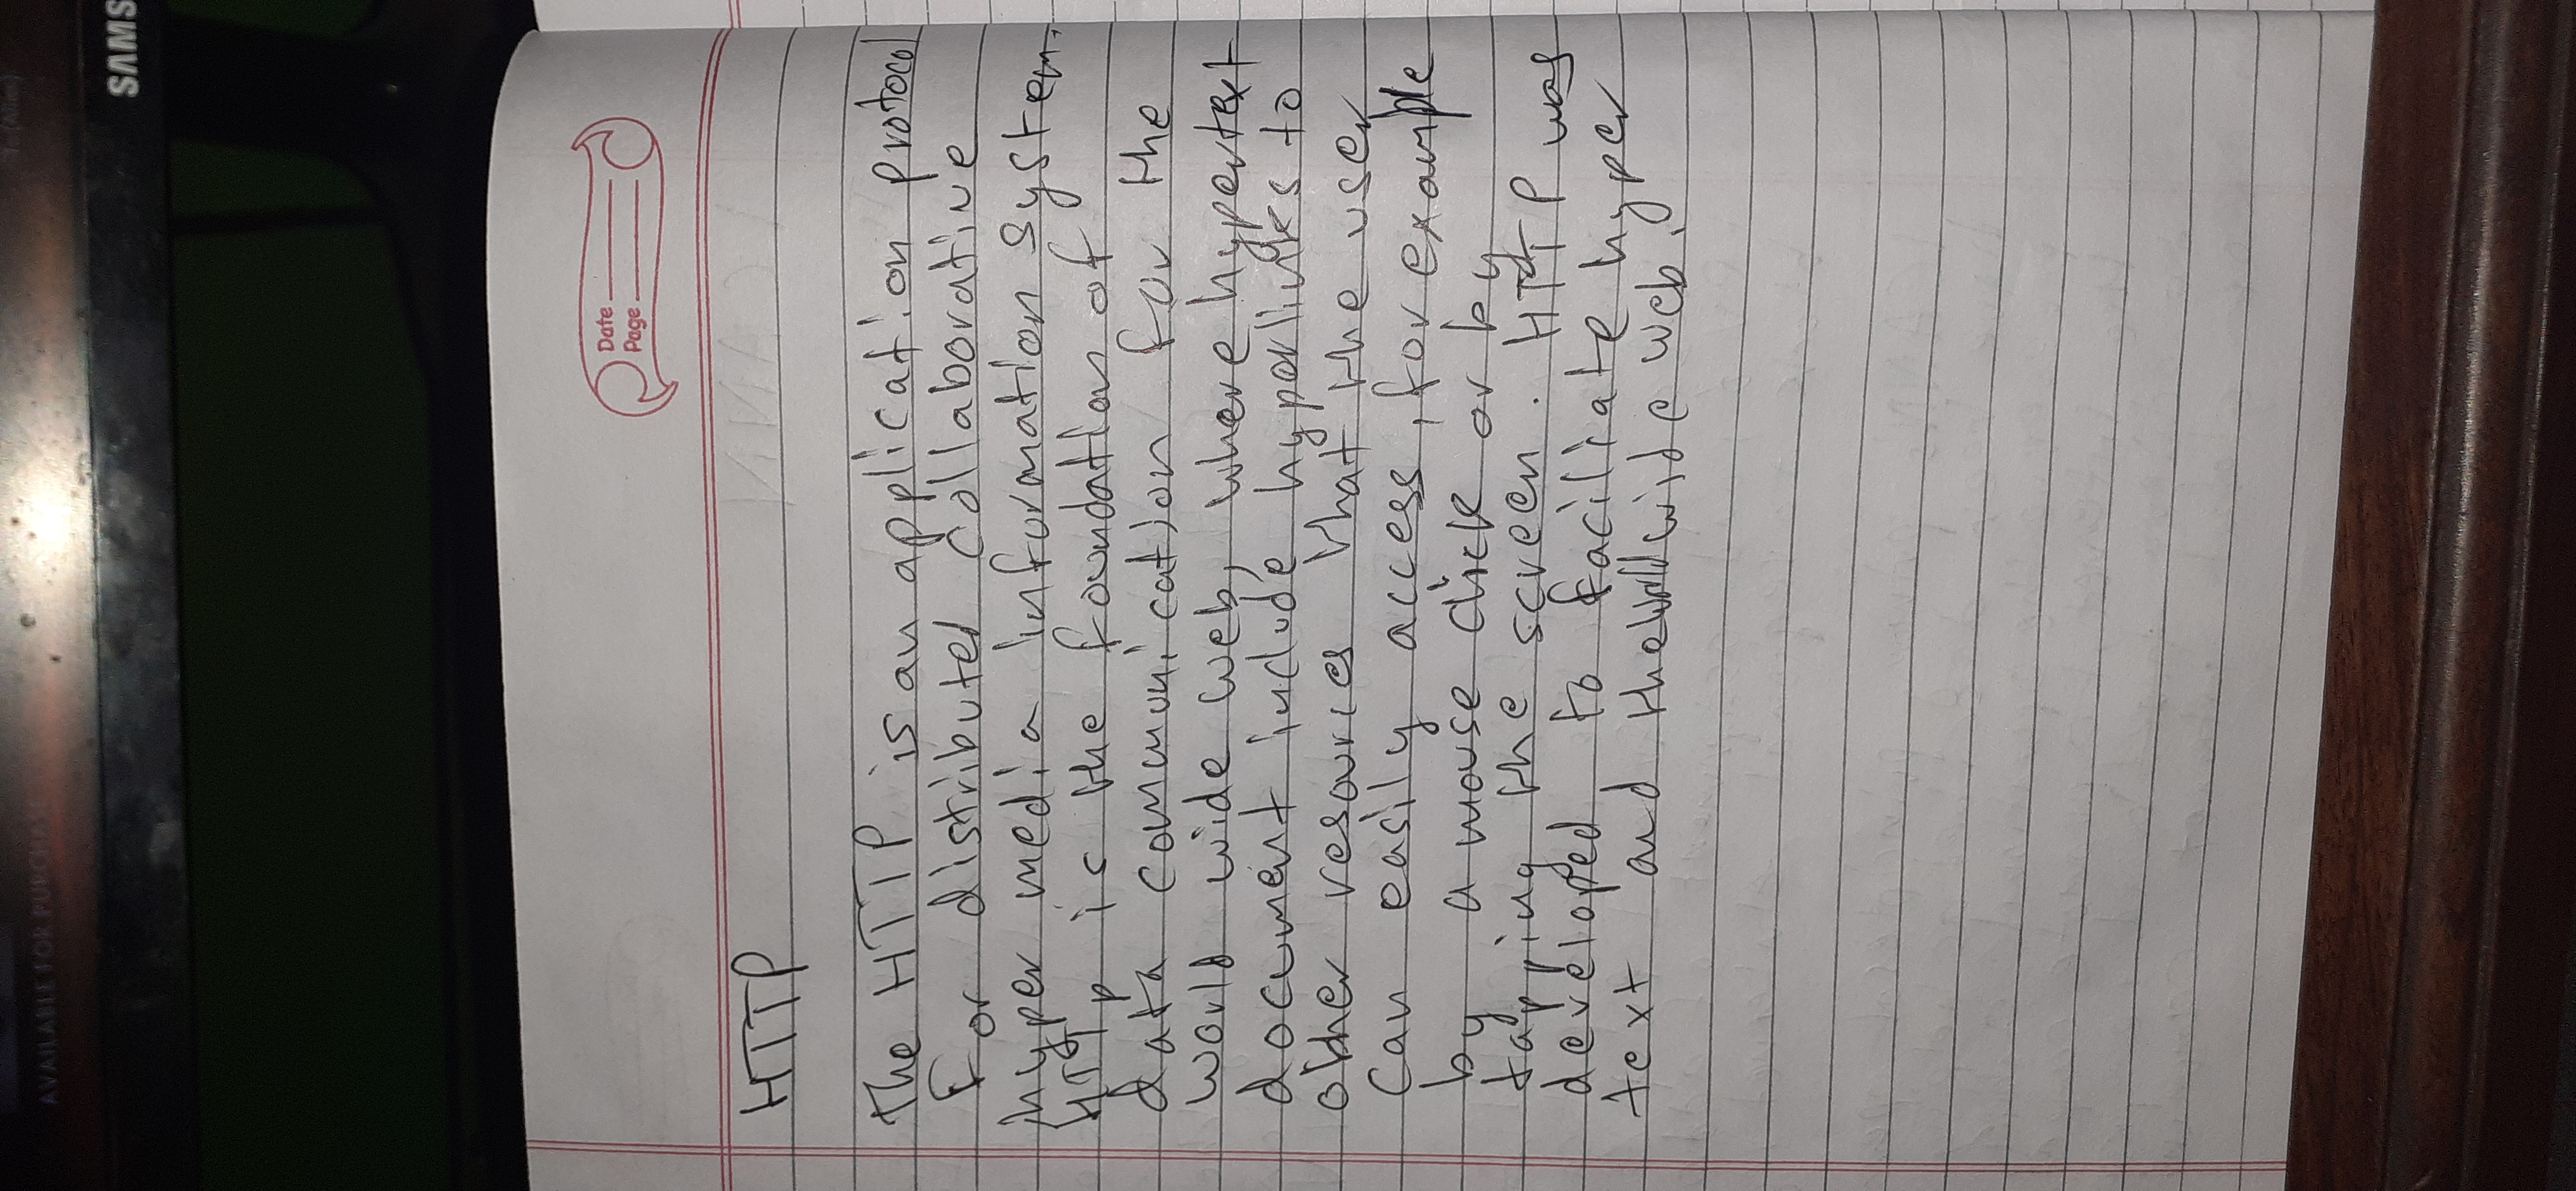 AVAILABLE FOR PURCHASE
SAMS
Date
Page
HTTP
The HTTP is an application protocol
For distributed collaborative
hyper media information system.
HTTP is the foundation of
data communication for the
World wide web, where hypertext
document include hyperlinks to
other resources that the user
Can easily access, for example
by a mouse click or by
tapping the screen. HTTP was
developed to faciliate hyper
text and the World wide web.